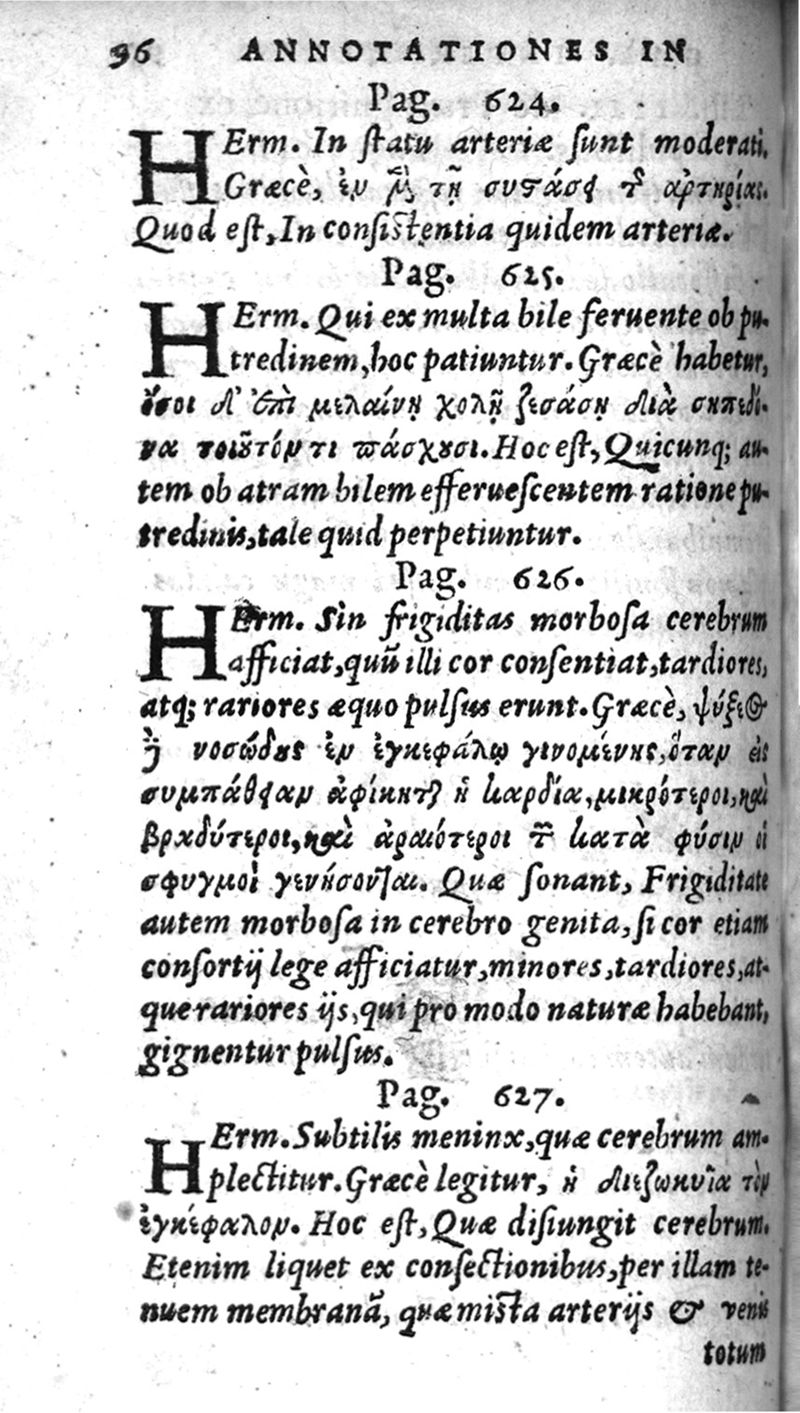 96 ANNOTATIONES IN
Pag. 624.
HErm. In ſtatu arteriæ ſunt moderati.
Græcè, ἐν μὲν τῇ συστάσει τῆς ἀρτηρίας.
Quod eſt, In conſiſtentia quidem arteriæ.
Pag. 625.
HErm. Qui ex multa bile feruente ob pu-
tredinem, hoc patiuntur. Græcè habetur,
ὅσοι δ' ἐπὶ μελαίνῃ χολῇ ζεσάσῃ διὰ σηπεδό-
να τοιοῦτόν τι πάσχουσι. Hoc eſt, Quicunq; au-
tem ob atram bilem efferueſcentem ratione pu-
tredinis, tale quid perpetiuntur.
Pag. 626.
HErm. Sin frigiditas morboſa cerebrum
afficiat, quū illi cor conſentiat, tardiores,
atq; rariores æquo pulſus erunt. Græcè, ψύξεως
δὲ νοσώδους ἐν ἐγκεφάλῳ γινομένης, ὅταν εἰς
συμπάθειαν ἀφίκηται ἡ καρδία, μικρότεροι, καὶ
βραδύτεροι, καὶ ἀραιότεροι τῶν κατὰ φύσιν οἱ
σφυγμοὶ γενήσονται. Quæ ſonant, Frigiditate
autem morboſa in cerebro genita, ſi cor etiam
conſortij lege afficiatur, minores, tardiores, at-
que rariores ijs, qui pro modo naturæ habebant,
gignentur pulſus.
Pag. 627.
HErm. Subtilis meninx, quæ cerebrum am-
plectitur. Græcè legitur, ἡ διεζωκυῖα τὸν
ἐγκέφαλον. Hoc eſt, Quæ diſiungit cerebrum.
Etenim liquet ex conſectionibus, per illam te-
nuem membranā, quæ miſta arterijs & venis
totum